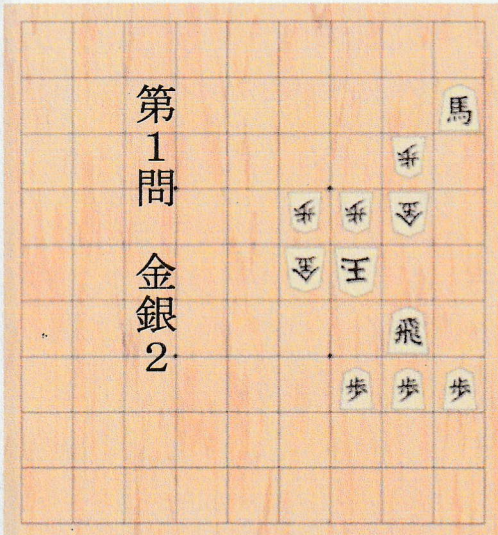 第1問 金銀2
馬
歩
歩 歩 金
金 王
飛
歩 歩 歩